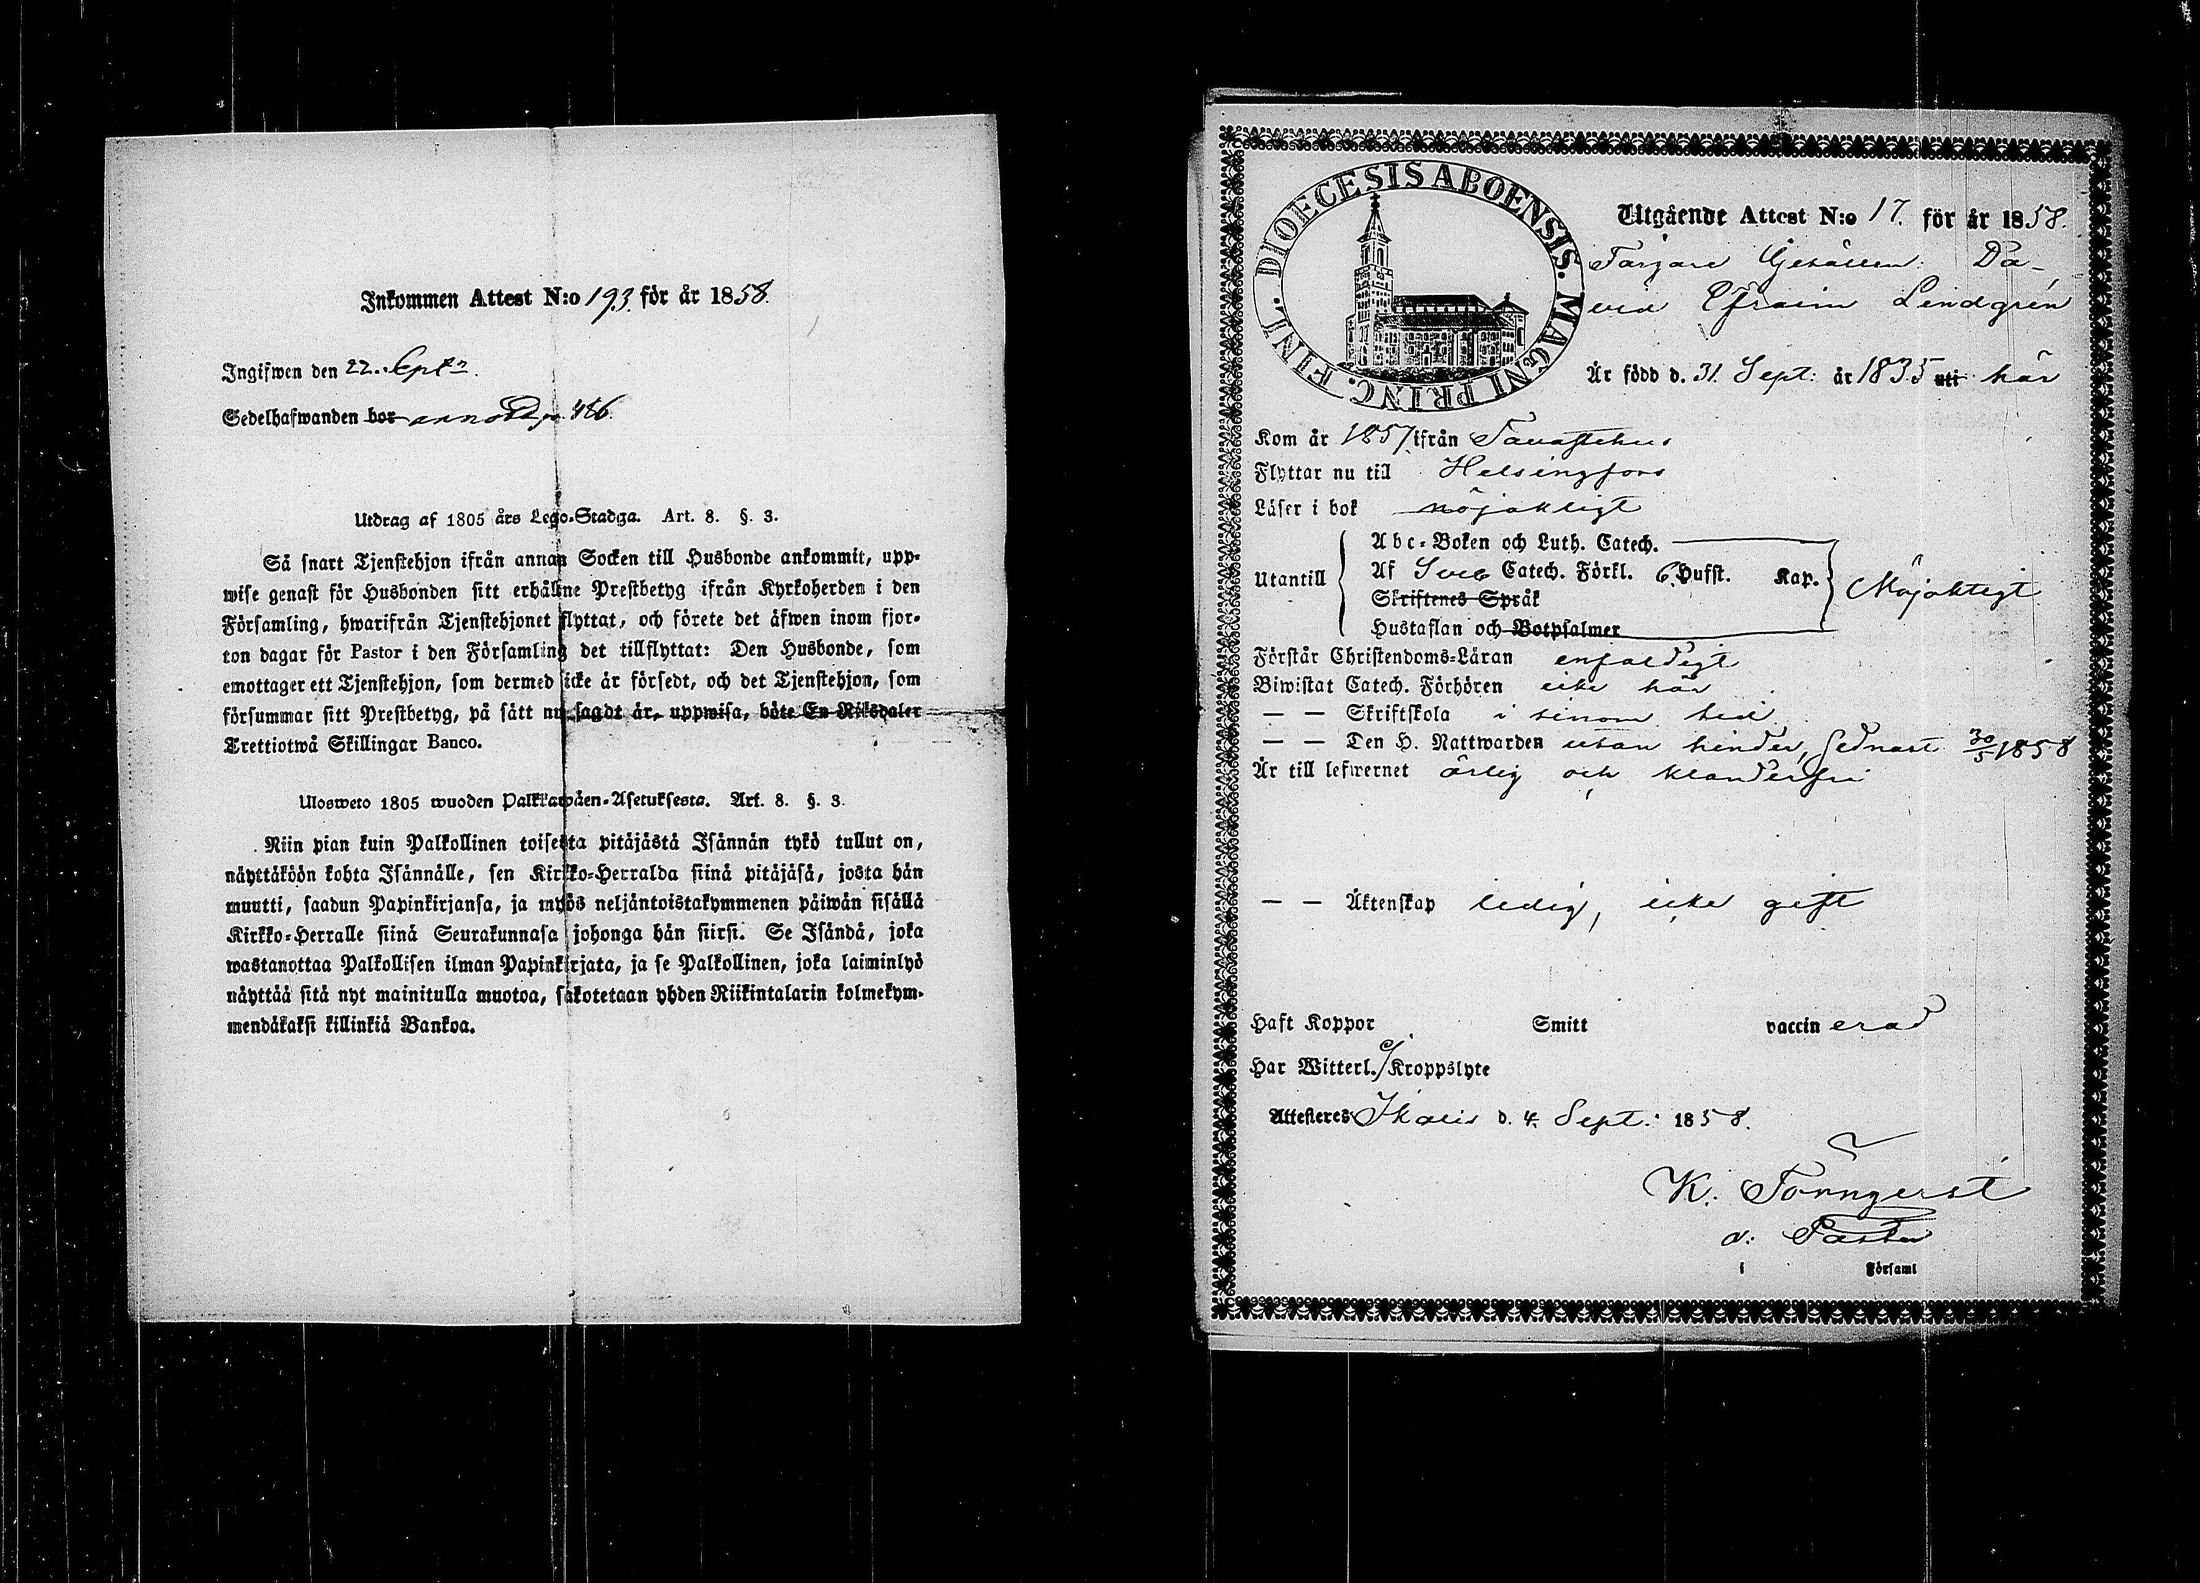 Inkommen Attest N:o 193. för år 1858.
Ingifwen den 22. Sept:
Sedelhafwanden bor annot. p. 456.
Utdrag af 1805 års Lego-Stadga. Art. 8. §. 3.
Så snart Tjenstehjon ifrån annan Socken till Husbonde ankommit, upp-
wise genast för Husbonden sitt erhållne Prestbetyg ifrån Kyrkoherden i den
Församling, hwarifrån Tjenstehjonet flyttat, och förete det äfwen inom fjor-
ton dagar för Pastor i den Församling det tillflyttat: Den Husbonde, som
emottager ett Tjenstehjon, som dermed icke är försedt, och det Tjenstehjon, som
försummar sitt Prestbetyg, på sätt nu sagdt är, uppwisa, böte En Riksdaler
Trettiotwå Skillingar Banco.
Ulosweto 1805 wuoden Palkkawäen-Asetuksesta. Art. 8. §. 3.
Niin pian kuin Palkollinen toisesta pitäjästä Isännän tykö tullut on,
näyttäköön kohta Isännälle, sen Kirkko-Herralda siinä pitäjäsä, josta hän
muutti, saadun Papinkirjansa, ja myös neljäntoistakymmenen päiwän sisällä
Kirkko-Herralle siinä Seurakunnasa johonga hän siirsi. Se Isändä, joka
wastanottaa Palkollisen ilman Papinkirjata, ja se Palkollinen, joka laiminlyö
näyttää sitä nyt mainitulla muotoa, sakotetaan yhden Riikintalarin kolmekym-
mendäkaksi killinkiä Bankoa.
DIOECESIS ABOENSIS. MAGNI PRINC. FINL.
Utgående Attest N:o 17. för år 1858.
Färgare Gesällen Da-
vid Efraim Lindgrén
Är född d. 31. Sept: år 1835 uti här
Kom år 1857 ifrån Tavastehus
Flyttar nu till Helsingfors
Läser i bok nöjaktigt
Abc-Boken och Luth. Catech.
Utantill Af Sveb Catech. Förkl. 6 Hufst. Kap. Nöjaktigt
Skriftenes Språk
Hustaflan och Botpsalmer
Förstår Christendoms-Läran enfaldigt
Biwistat Catech. Förhören icke här
— — Skriftskola i sinom tid
— — Den H. Nattwarden utan hinder, sednast 30/5 1858
Är till lefwernet ärlig och klanderfri
— — Äktenskap ledig, icke gift
Haft Koppor Smitt vaccinerad
Har Witterl. ej Kroppslyte
Attesteres Ikalis d. 4. Sept: 1858.
K. Törnqvist
v: Pastor
i Församl